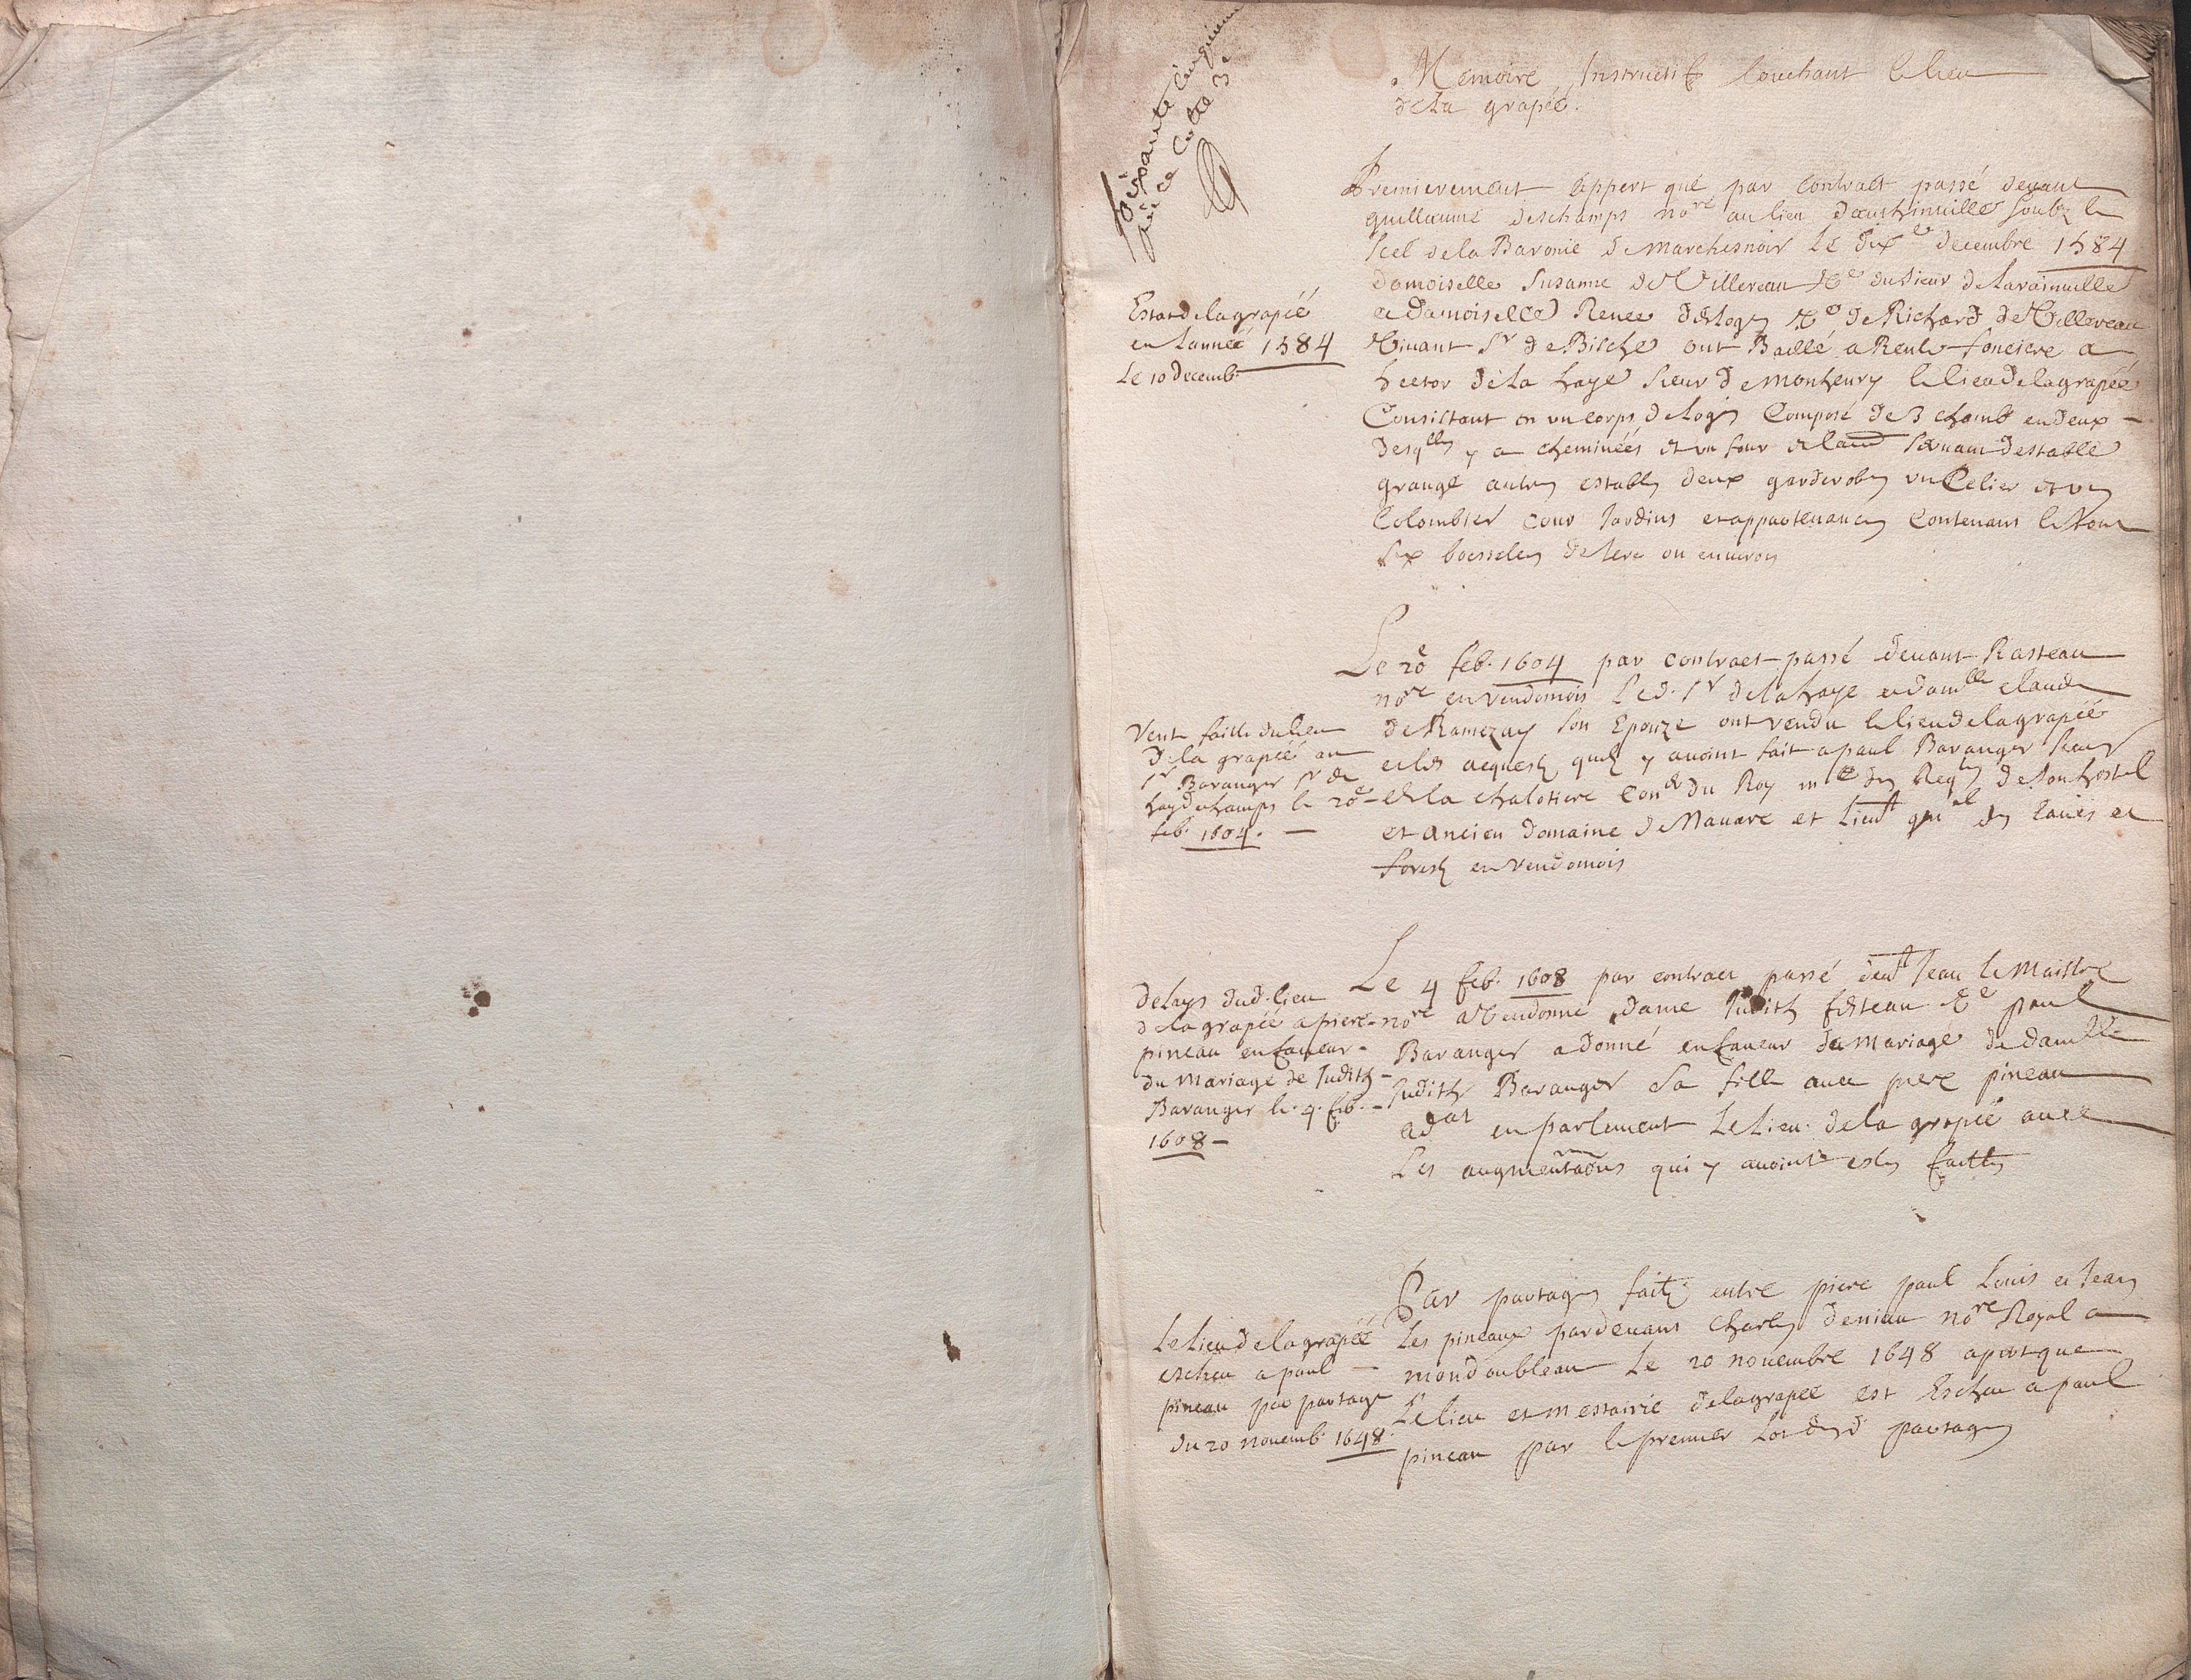 Memoire Instructif touchant le lieu
de la grapéé.
Premierement appert que par contract passé devant
guillaume deschamps no.re au lieu soubz le
scel de la Baronie de Marchesnoir Le dix.e decembre 1584
damoiselle Susanne de Villereau V.e du sieur de
et Damoiselle Renee V.e de Richard de Villereau
Vivant S.r de Bilche ont Baillé a Rente fonciere a
hector de la haye sieur de monheury le lieu de la grapéé
Consistant en un corps de logis Composé de 3 chamb en deux
desq.lles y a cheminéés et un four servant destable
grange autres estables deux garderobes un Celier et un
Colombier cour Jardins et appartenances Contenans le tout
six boesselees de tere ou environ
Estat de la grapéé
en Lannéé 1584
Le 10 decemb.
Le 20.e feb. 1604 par contract passé devant Rasteau
no.re en vendomois Led. S.r de la haye et dam.lle claude
de Ramezay son Epouze ont vendu le lieu de la grapéé
et les acquests quils y avoint fait a paul Baranger sieur
de la chalotiere Con.er du Roy m.e des Req.tes de son hostel
et ancien domaine de Navare et Lieu.t gn.al des Eaues et
forests en Vendomois
Vente faitte du lieu
de la grapéé au
S.r Baranger S.r de
le 20.e
feb. 1604.
Le 4 feb. 1608 par contract passé dev.t Jean le Maistre
no.re a Vendome Dame Judith festeau V.e paul
Baranger a donné en faveur du Mariage de dam.lle
Judith Baranger sa fille avec piere pineau
ad.at en parlement Le Lieu de la grapéé avec
Les augmentaõns qui y avoint estés faittes
delays dud. lieu
de la grapéé a piere
pineau en faveur
du Mariage de Judith
Baranger le 4. feb.
1608
Par partages faits entre piere paul Louis et Jean
Les pineaux pardevant Charles deniau no.re Royal a
mondoubleau Le 20 novembre 1648 apert que
Le lieu et mestairie de la grapéé est Escheu a paul
pineau par le premier Lot desd. partages
Le Lieu de la grapéé
escheu a paul
pineau par partage
du 20 novemb. 1648.